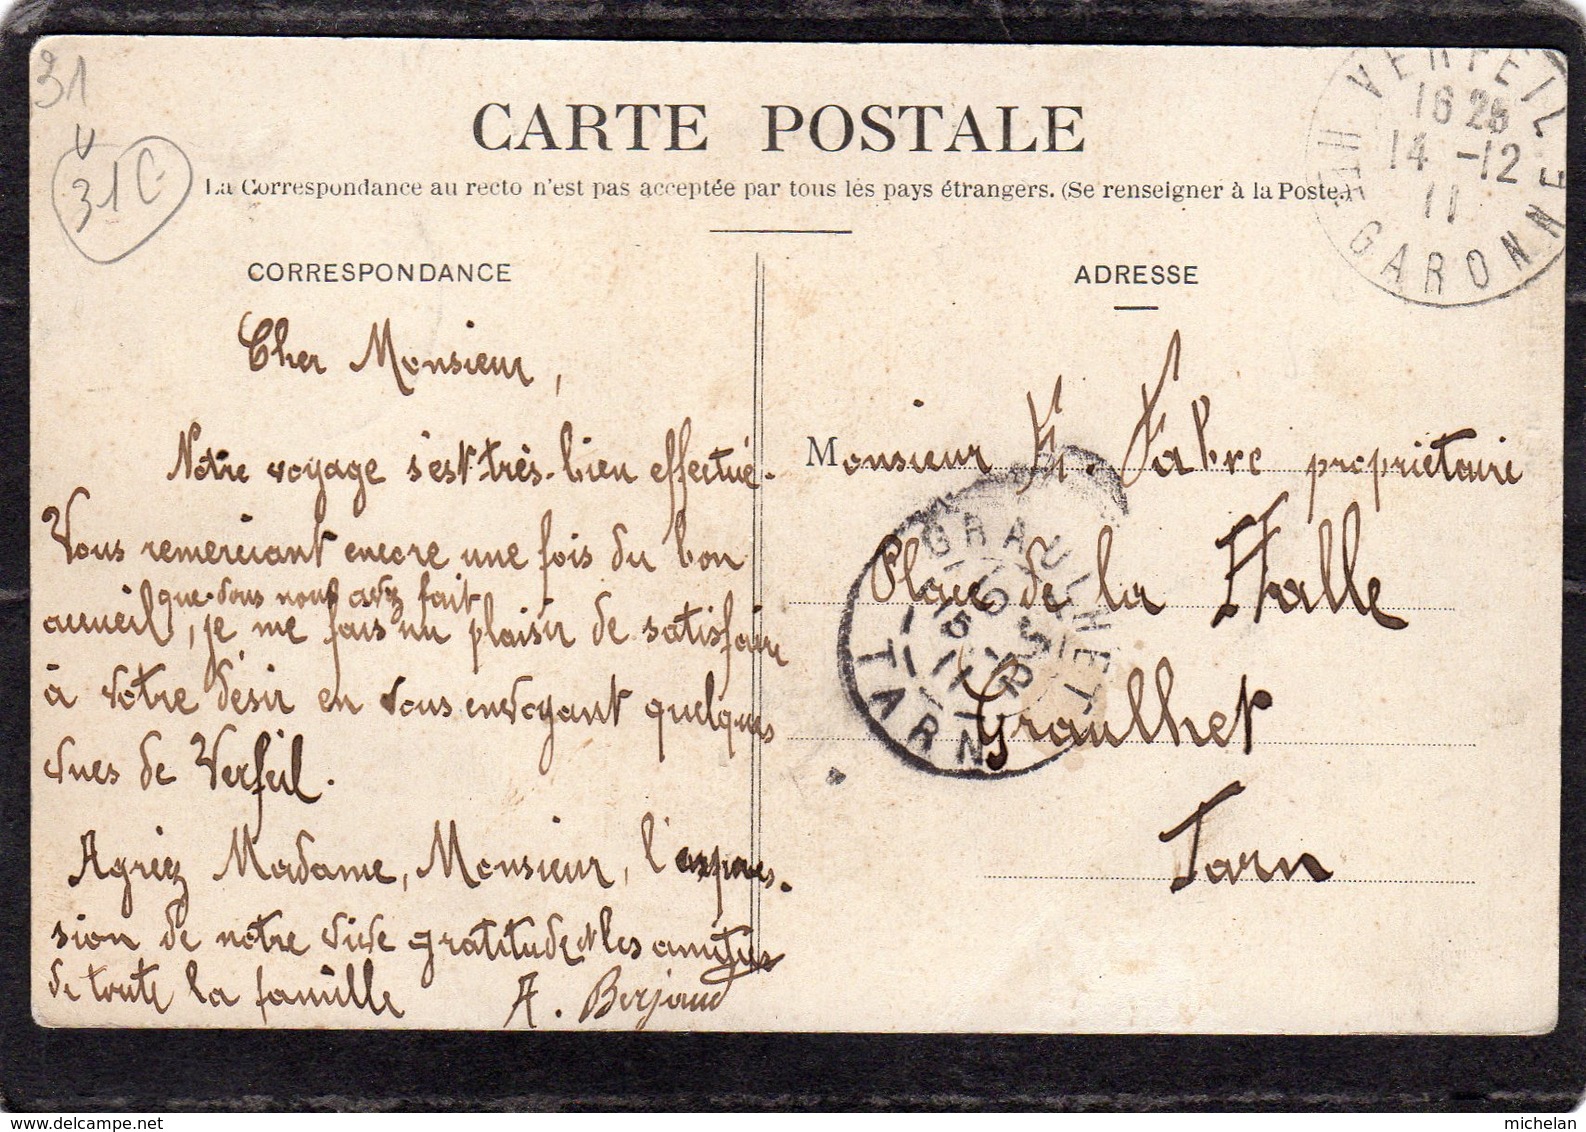 31
31C
CARTE POSTALE
La Correspondance au recto n'est pas acceptée par tous les pays étrangers. (Se renseigner à la Poste.)
VERFEIL
16 25
14 -12
11
HTE GARONNE
CORRESPONDANCE
Cher Monsieur,
Notre voyage s'est très-bien effectué.
Vous remerciant encore une fois du bon
que vous nous avez fait
accueil, je me fais un plaisir de satisfaire
à votre désir en vous envoyant quelques
vues de Verfeil.
Agréez Madame, Monsieur, l'expres-
sion de notre vive gratitude et les amitiés
de toute la famille
A. Berjaud
ADRESSE
Monsieur H. Fabre propriétaire
Place de la Halle
Graulhet
Tarn
GRAULHET
TARN
michelan